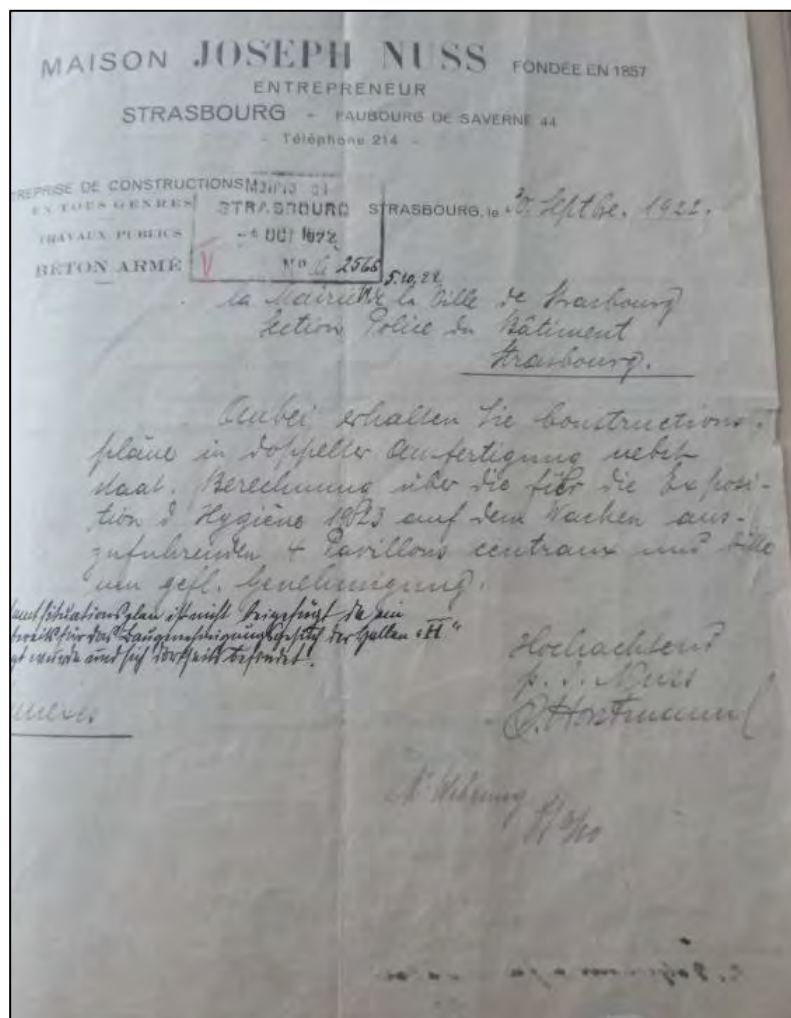 MAISON JOSEPH NUSS FONDÉE EN 1857
ENTREPRENEUR
STRASBOURG - FAUBOURG DE SAVERNE 44
- Téléphone 214 -
REPRISE DE CONSTRUCTIONS
EN TOUS GENRES
TRAVAUX PUBLICS
BÉTON ARMÉ
STRASBOURG
OCT 1922
No 2566
5.10.22
STRASBOURG, le 30 Septbre. 1922.
la Mairie de la Ville de Strasbourg
Section Police du Bâtiment
Strasbourg.
Anbei erhalten Sie Constructions-
pläne in doppelter Ausfertigung nebst
staat. Berechnung über die für die Exposi-
tion d'Hygiène 1923 auf dem Wacken aus-
zuführenden 4 Pavillons centraux und bitte
um gefl. Genehmigung.
situationsplan ist nicht beigefügt da ein
für das Baugenehmigungsgesuch der Hallen "H"
wurde und sich dortseits befindet.
Hochachtend
p. J. Nuss
Horstmann